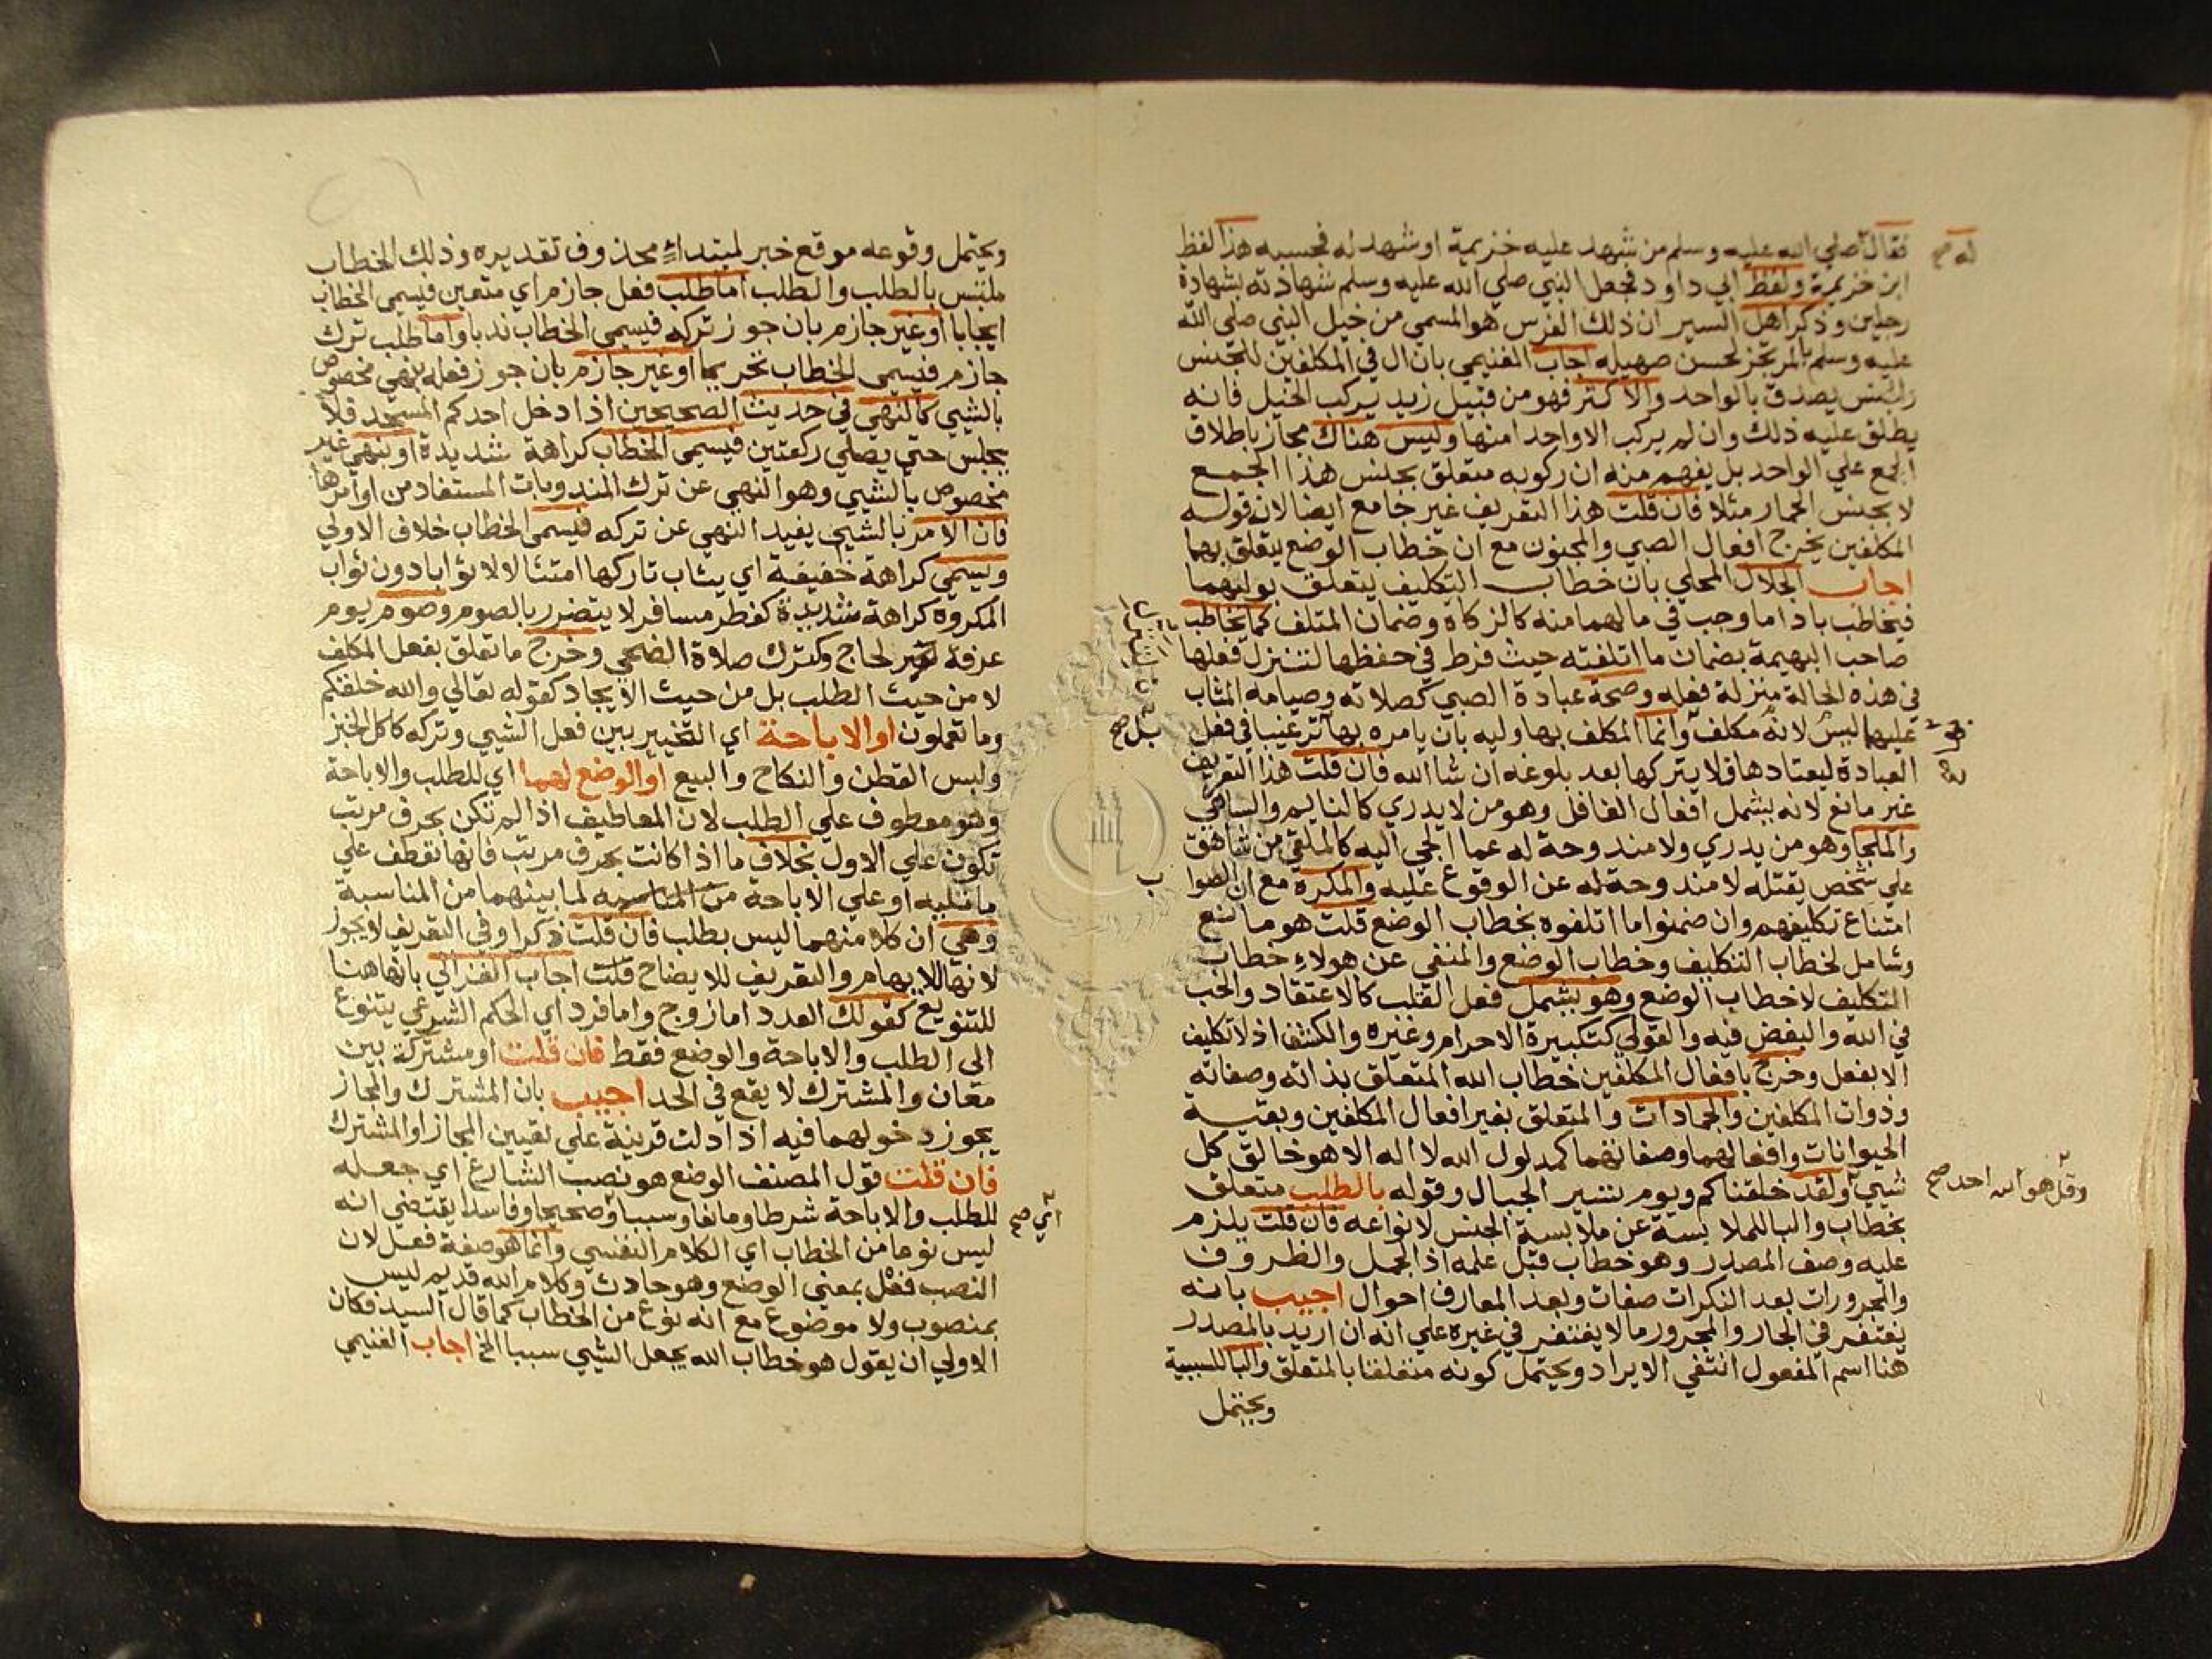 فقال صلي الله عليه وسلم من شهد عليه خزيمة او شهد له فحسبه هذا لفظ
له صح
ابن خزيمة ولفظ ابي داود فجعل النبي صلي الله عليه وسلم شهادته بشهادة
رجلين وذكر اهل السير ان ذلك الفرس هو المسمي من خيل النبي صلي الله
عليه وسلم بالمرتجز لحسن صهيله اجاب الغنيمي بان ال في المكلفين للجنس
والجنس يصدق بالواحد والاكثر فهو من قبيل زيد يركب الخيل فانه
يطلق عليه ذلك وان لم يركب الا واحدا منها وليس هناك مجاز باطلاق
الجمع علي الواحد بل يفهم منه ان ركوبه متعلق بجنس هذا الجمع
لا بجنس الحمار مثلا فان قلت هذا التعريف غير جامع ايضا لان قوله
المكلفين يخرج افعال الصبي والمجنون مع ان خطاب الوضع يتعلق بهما
اجاب الجلال المحلي بان خطاب التكليف يتعلق بوليهما
فيخاطب باداما وجب في مالهما منه كالزكاه وضمان المتلف كما يخاطب
صاحب البهيمة بضمان ما اتلفته حيث فرط في حفظها لتنزل فعلها
في هذه الحالة منزلة فعله وصحة عبادة الصبي كصلاته وصيامه المثاب
عليهما ليس لانه مكلف وانما المكلف بها وليه بان يامره بها ترغيبا في فعل
بل صح
العبادة ليعتادها فلا يتركها بعد بلوغه ان شا الله فان قلت هذا التعريف
غير مانع لانه يشمل افعال الغافل وهو من لا يدري كالنايم والساهي
والملجا وهو من يدري ولا مندوحة له عما الجي اليه كالملقي من شاهق
علي شخص يقتله لا مندوحة له عن الوقوع عليه والمكره مع ان الصوا
ب
امتناع تكليفهم وان ضمنوا ما اتلفوه بخطاب الوضع قلت هو مانع
وشامل لخطاب التكليف وخطاب الوضع والمنفي عن هولاء خطاب
التكليف لا خطاب الوضع وهو يشمل فعل القلب كالاعتقاد والحب
في الله والبغض فيه والقولي كتكبيرة الاحرام وغيره والكشف اذ لا تكليف
الا بفعل وخرج بافعال المكلفين خطاب الله المتعلق بذاته وصفاته
وذوات المكلفين والجمادات والمتعلق بغير افعال المكلفين وبقية
الحيوانات وافعالهما وصفاتهما كمدلول الله لا اله الا هو خالق كل
شيي ولقد خلقناكم ويوم نسير الجبال وقوله بالطلب متعلق
وقل هو الله احد صح
بخطاب والبا للملابسة عن ملابسة الجنس لانواعه فان قلت يلزم
عليه وصف المصدر وهو خطاب قبل عمله اذ الجمل والظروف
والمجرورات بعد النكرات صفات وبعد المعارف احوال اجيب بانه
يغتفر في الجار والمجرور ما لا يغتفر في غيره علي انه ان اريد بالمصدر
هنا اسم المفعول انتفي الايراد ويحتمل كونه متعلقا بالمتعلق والبا للسببية
ويحتمل
ويحتمل وقوعه موقع خبر لمبتداء محذوف تقديره وذلك الخطاب
ملتبس بالطلب والطلب اما طلب فعل جازم اي متعين فيسمي الخطاب
ايجابا او غير جازم بان جوز تركه فيسمي الخطاب ندبا واما طلب ترك
جازم فيسمي الخطاب تحريما او غير جازم بان جوز فعله بنهي مخصوص
بالشيي كالنهي في حديث الصحيحين اذا دخل احدكم المسجد فلا
يجلس حتي يصلي ركعتين فيسمي الخطاب كراهة شديدة او بنهي غير
مخصوص بالشيي وهو النهي عن ترك المندوبات المستفاد من اوامرها
فان الامر بالشيي يفيد النهي عن تركه فيسمي الخطاب خلاف الاولي
ويسمي كراهة خفيفة اي يثاب تاركها امتثالا لا ثوابا دون ثواب
المكروه كراهة شديدة كفطر مسافر لا يتضرر بالصوم وصوم يوم
عرفة لغير لحاج وكترك صلاة الضحي وخرج ما تعلق بفعل المكلف
لا من حيث الطلب بل من حيث الايجاد كقوله تعالي والله خلقكم
وما تعملون او الاباحة اي التخيير بين فعل الشيي وتركه كاكل الخبز
ولبس القطن والنكاح والبيع او الوضع لهما اي للطلب والاباحة
وهو معطوف علي الطلب لان المعاطيف اذا لم تكن بحرف مرتب
تكون علي الاول بخلاف ما اذا كانت بحرف مرتب فانها تعطف علي
ما تليه او علي الاباحة من المناسبه لما بينهما من المناسبة
وهي ان كلا منهما ليس بطلب فان قلت ذكر او في التعريف لا يجوز
لانها للابهام والتعريف للايضاح قلت اجاب الغزالي بانها هنا
للتنويع كقولك العدد اما زوج واما فرد اي الحكم الشرعي يتنوع
الى الطلب والاباحة والوضع فقط فان قلت او مشتركة بين
معان والمشترك لا يقع في الحد اجيب بان المشترك والمجاز
يجوز دخولهما فيه اذا دلت قرينة علي تعيين المجاز او المشترك
فان قلت قول المصنف الوضع هو نصب الشارع اي جعله
للطلب والاباحة شرطا ومانعا وسببا وصحيحا وفاسدا يقتضي انه
ليس نوعا من الخطاب اي الكلام النفسي وانما هو صفة فعل لان
النصب فعل بمعني الوضع وهو حادث وكلام الله قديم ليس
بمنصوب ولا موضوع مع انه نوع من الخطاب كما قال السيد فكان
الاولي ان يقول هو خطاب الله يجعل الشيي سببا الخ اجاب الغنيمي